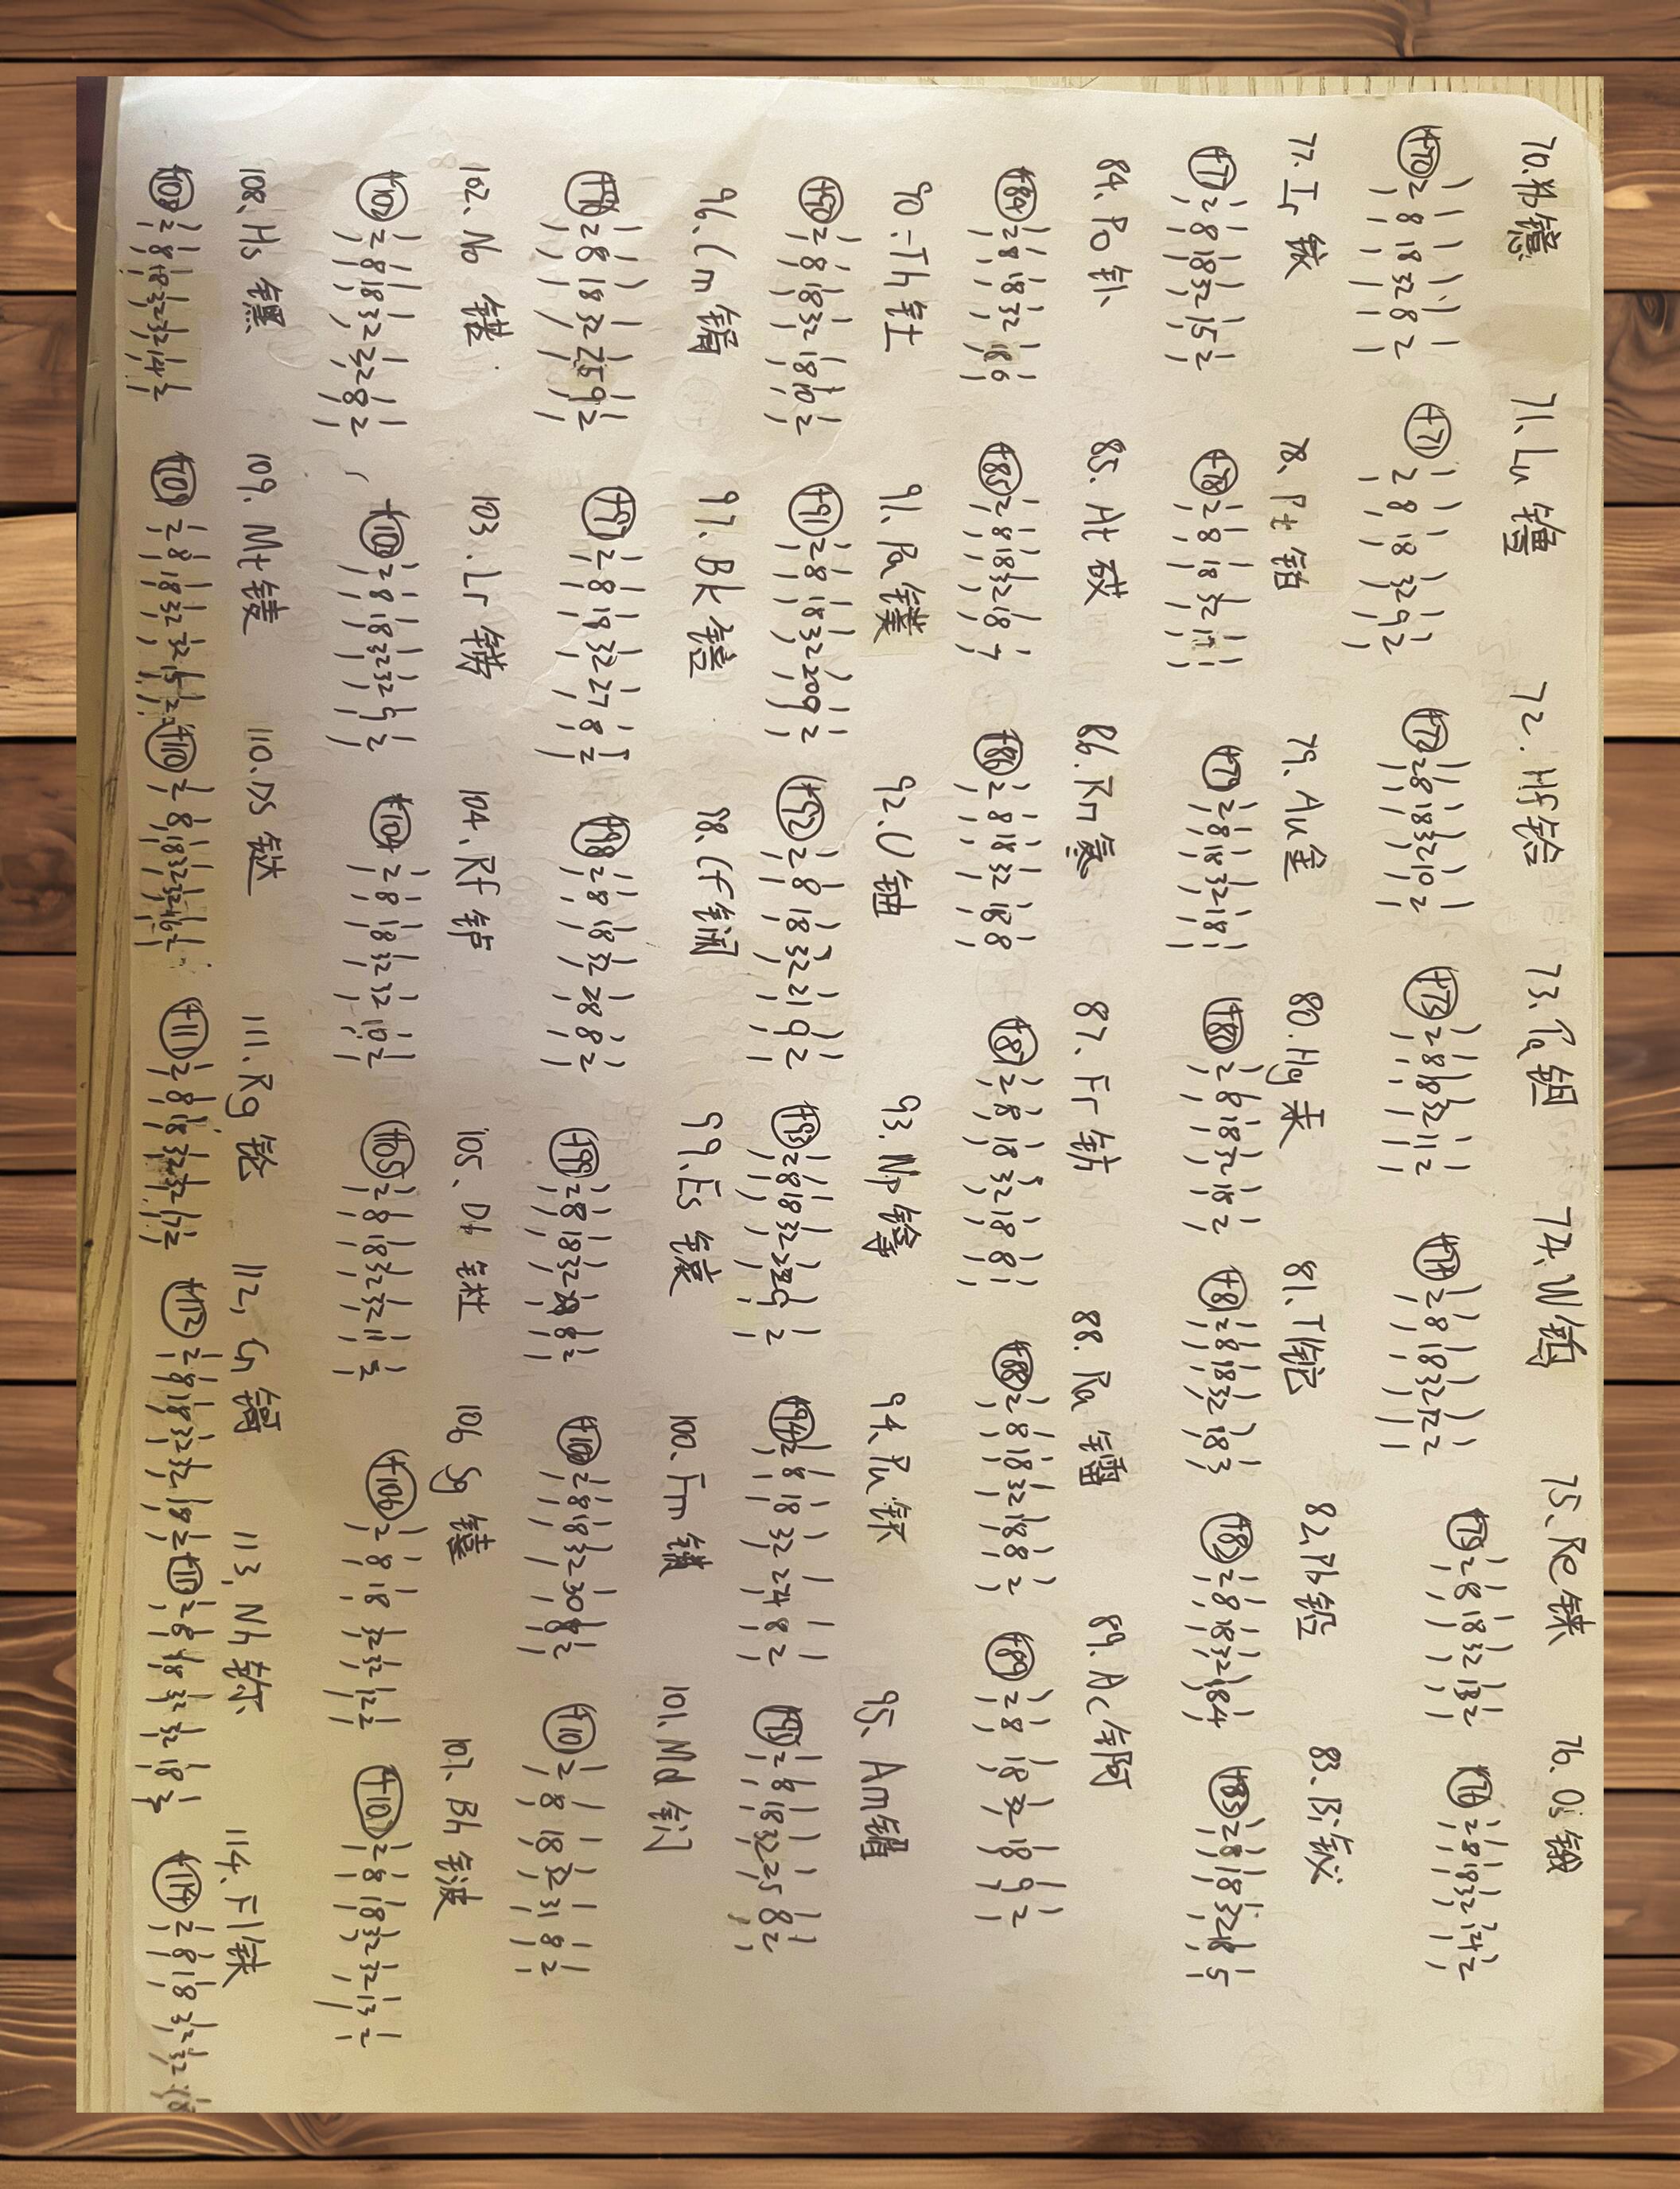 70.Yb镱 71.Lu镥 72.Hf铪 73.Ta钽 74.W钨 75.Re铼 76.Os锇
+70 2 8 18 32 8 2 +71 2 8 18 32 9 2 +72 2 8 18 32 10 2 +73 2 8 18 32 11 2 +74 2 8 18 32 12 2 +75 2 8 18 32 13 2 +76 2 8 18 32 14 2
77.Ir铱 78.Pt铂 79.Au金 80.Hg汞 81.Tl铊 82.Pb铅 83.Bi铋
+77 2 8 18 32 15 2 +78 2 8 18 32 17 1 +79 2 8 18 32 18 1 +80 2 8 18 32 18 2 +81 2 8 18 32 18 3 +82 2 8 18 32 18 4 +83 2 8 18 32 18 5
84.Po钋 85.At砹 86.Rn氡 87.Fr钫 88.Ra镭 89.Ac锕
+84 2 8 18 32 18 6 +85 2 8 18 32 18 7 +86 2 8 18 32 18 8 +87 2 8 18 32 18 8 1 +88 2 8 18 32 18 8 2 +89 2 8 18 32 18 9 2
90.Th钍 91.Pa镤 92.U铀 93.Np镎 94.Pu钚 95.Am镅
+90 2 8 18 32 18 10 2 +91 2 8 18 32 20 9 2 +92 2 8 18 32 21 9 2 +93 2 8 18 32 22 9 2 +94 2 8 18 32 24 8 2 +95 2 8 18 32 25 8 2
96.Cm锔 97.Bk锫 98.Cf锎 99.Es锿 100.Fm镄 101.Md钔
+96 2 8 18 32 25 9 2 +97 2 8 18 32 27 8 2 +98 2 8 18 32 28 8 2 +99 2 8 18 32 29 8 2 +100 2 8 18 32 30 8 2 +101 2 8 18 32 31 8 2
102.No锘 103.Lr铹 104.Rf𬬻 105、Db𬭊 106 Sg𬭳 107.Bh𬭛
+102 2 8 18 32 32 8 2 +103 2 8 18 32 32 9 2 +104 2 8 18 32 32 10 2 +105 2 8 18 32 32 11 2 +106 2 8 18 32 32 12 2 +107 2 8 18 32 32 13 2
108.Hs𬭶 109.Mt鿏 110.Ds𫟼 111.Rg𬬭 112,Cn鿔 113,Nh鿭 114.Fl𫓧
+108 2 8 18 32 32 14 2 +109 2 8 18 32 32 15 2 +110 2 8 18 32 32 16 2 +111 2 8 18 32 32 17 2 +112 2 8 18 32 32 18 2 +113 2 8 18 32 32 18 3 +114 2 8 18 32 32 18